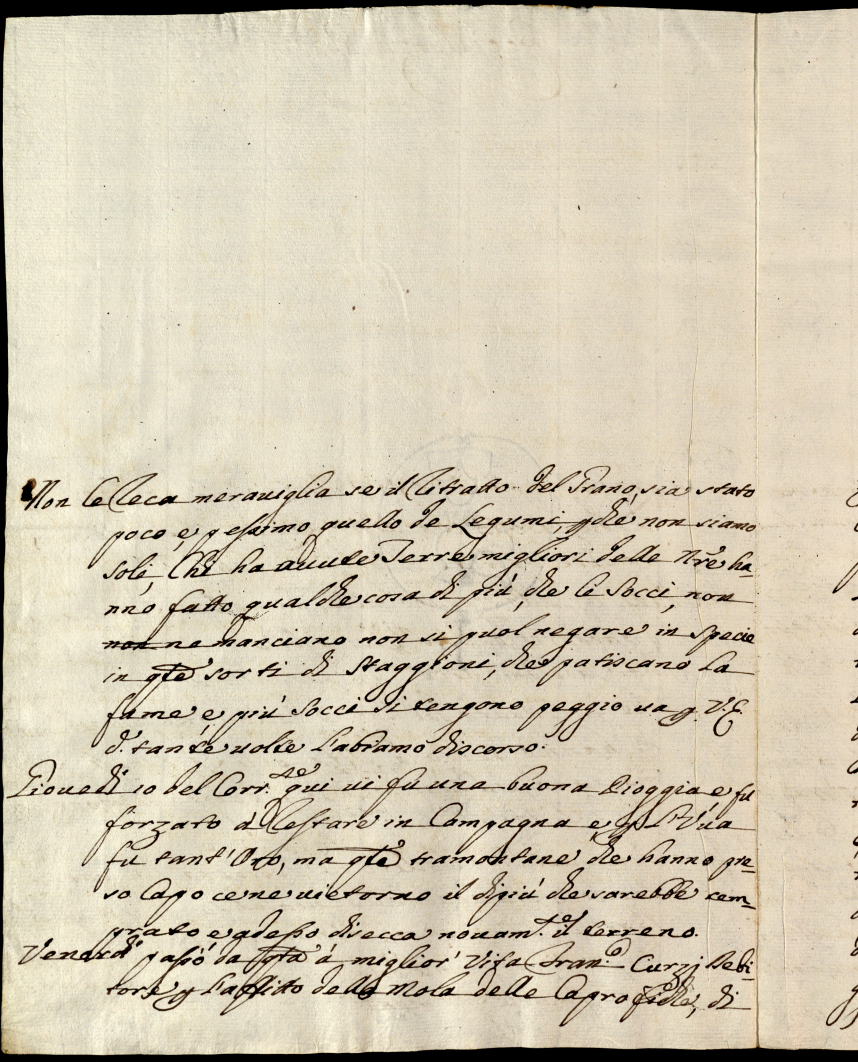 Non le Reca meraviglia se il Ritratto del Grano, sia stato
poco, e pessimo quello de Legumi, p che non siamo
soli, Chi ha avute Terre migliori delle Nre ha-
nno fatto qualche cosa di più, che le Socci, non
non ne manciano non si puol negare in specie
in qte sorti di Staggioni, che patiscano la
fame e più Socci si tengono peggio va p V.E.
d. tante volte l'abiamo discorso.
Giovedì 10 del Corr.te qui vi fù una buona Pioggia e fu
forzato di Restare in Campagna e p l'Vua
fu tant'Oro, ma qte tramontane che hanno pre-
so Capo ce ne vietorno il dipiù che sarebbe tem-
prato e adesso disecca novam.te il terreno.
Venardì passò da qta à miglior' Vita Fran.co Curzj Debi-
tore p l'affitto della Mola delle Caprofiche, di